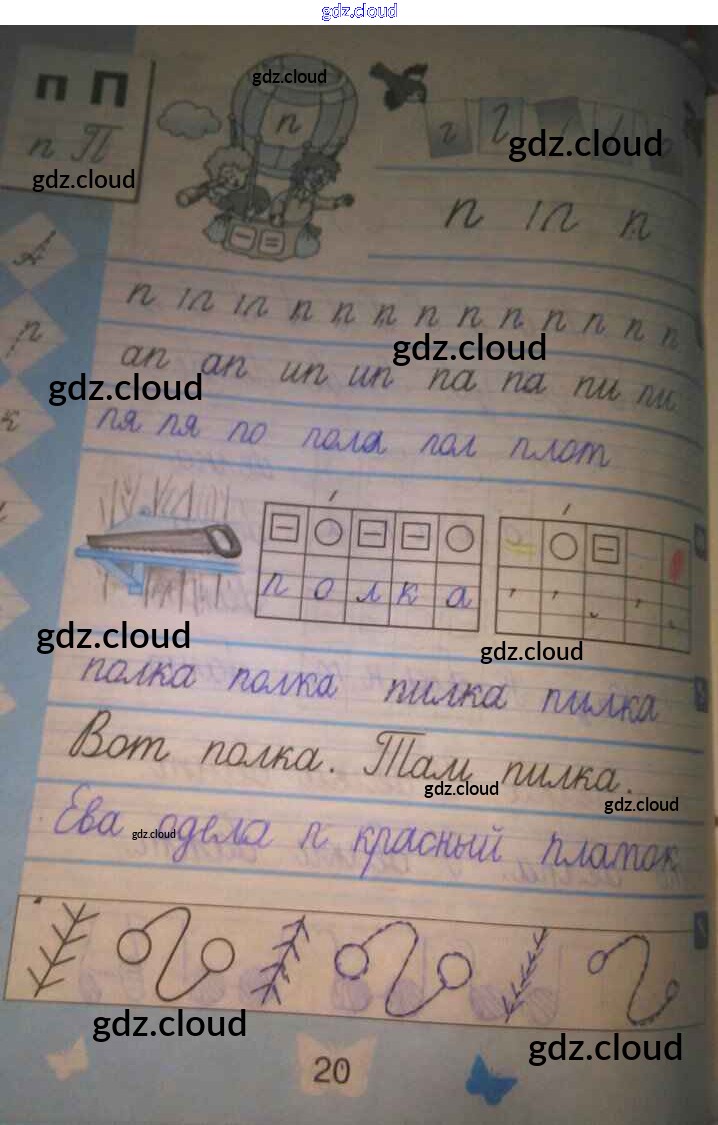 gdz.cloud
п П
gdz.cloud
п
г
gdz.cloud
п П
gdz.cloud
п п п
п п п п п п п п п п п п п
gdz.cloud
ап ап ип ип па па пи пи
gdz.cloud
пя пя по пола пол плот
п о л к а
gdz.cloud
gdz.cloud
полка полка пилка пилка
Вот полка. Там пилка.
gdz.cloud
gdz.cloud
Ева одела п красный платок
gdz.cloud
gdz.cloud
gdz.cloud
20